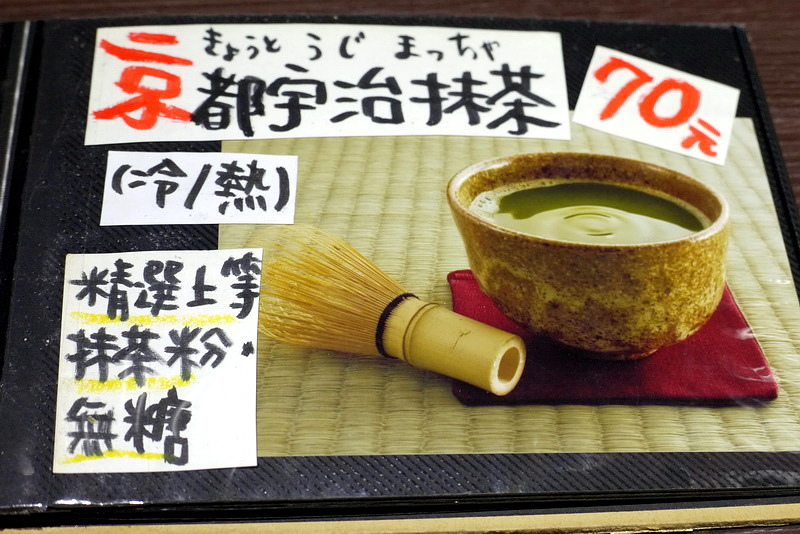 きょうと うじ まっちゃ
京都宇治抹茶
70元
(冷/熱)
精選上等
抹茶粉
無糖